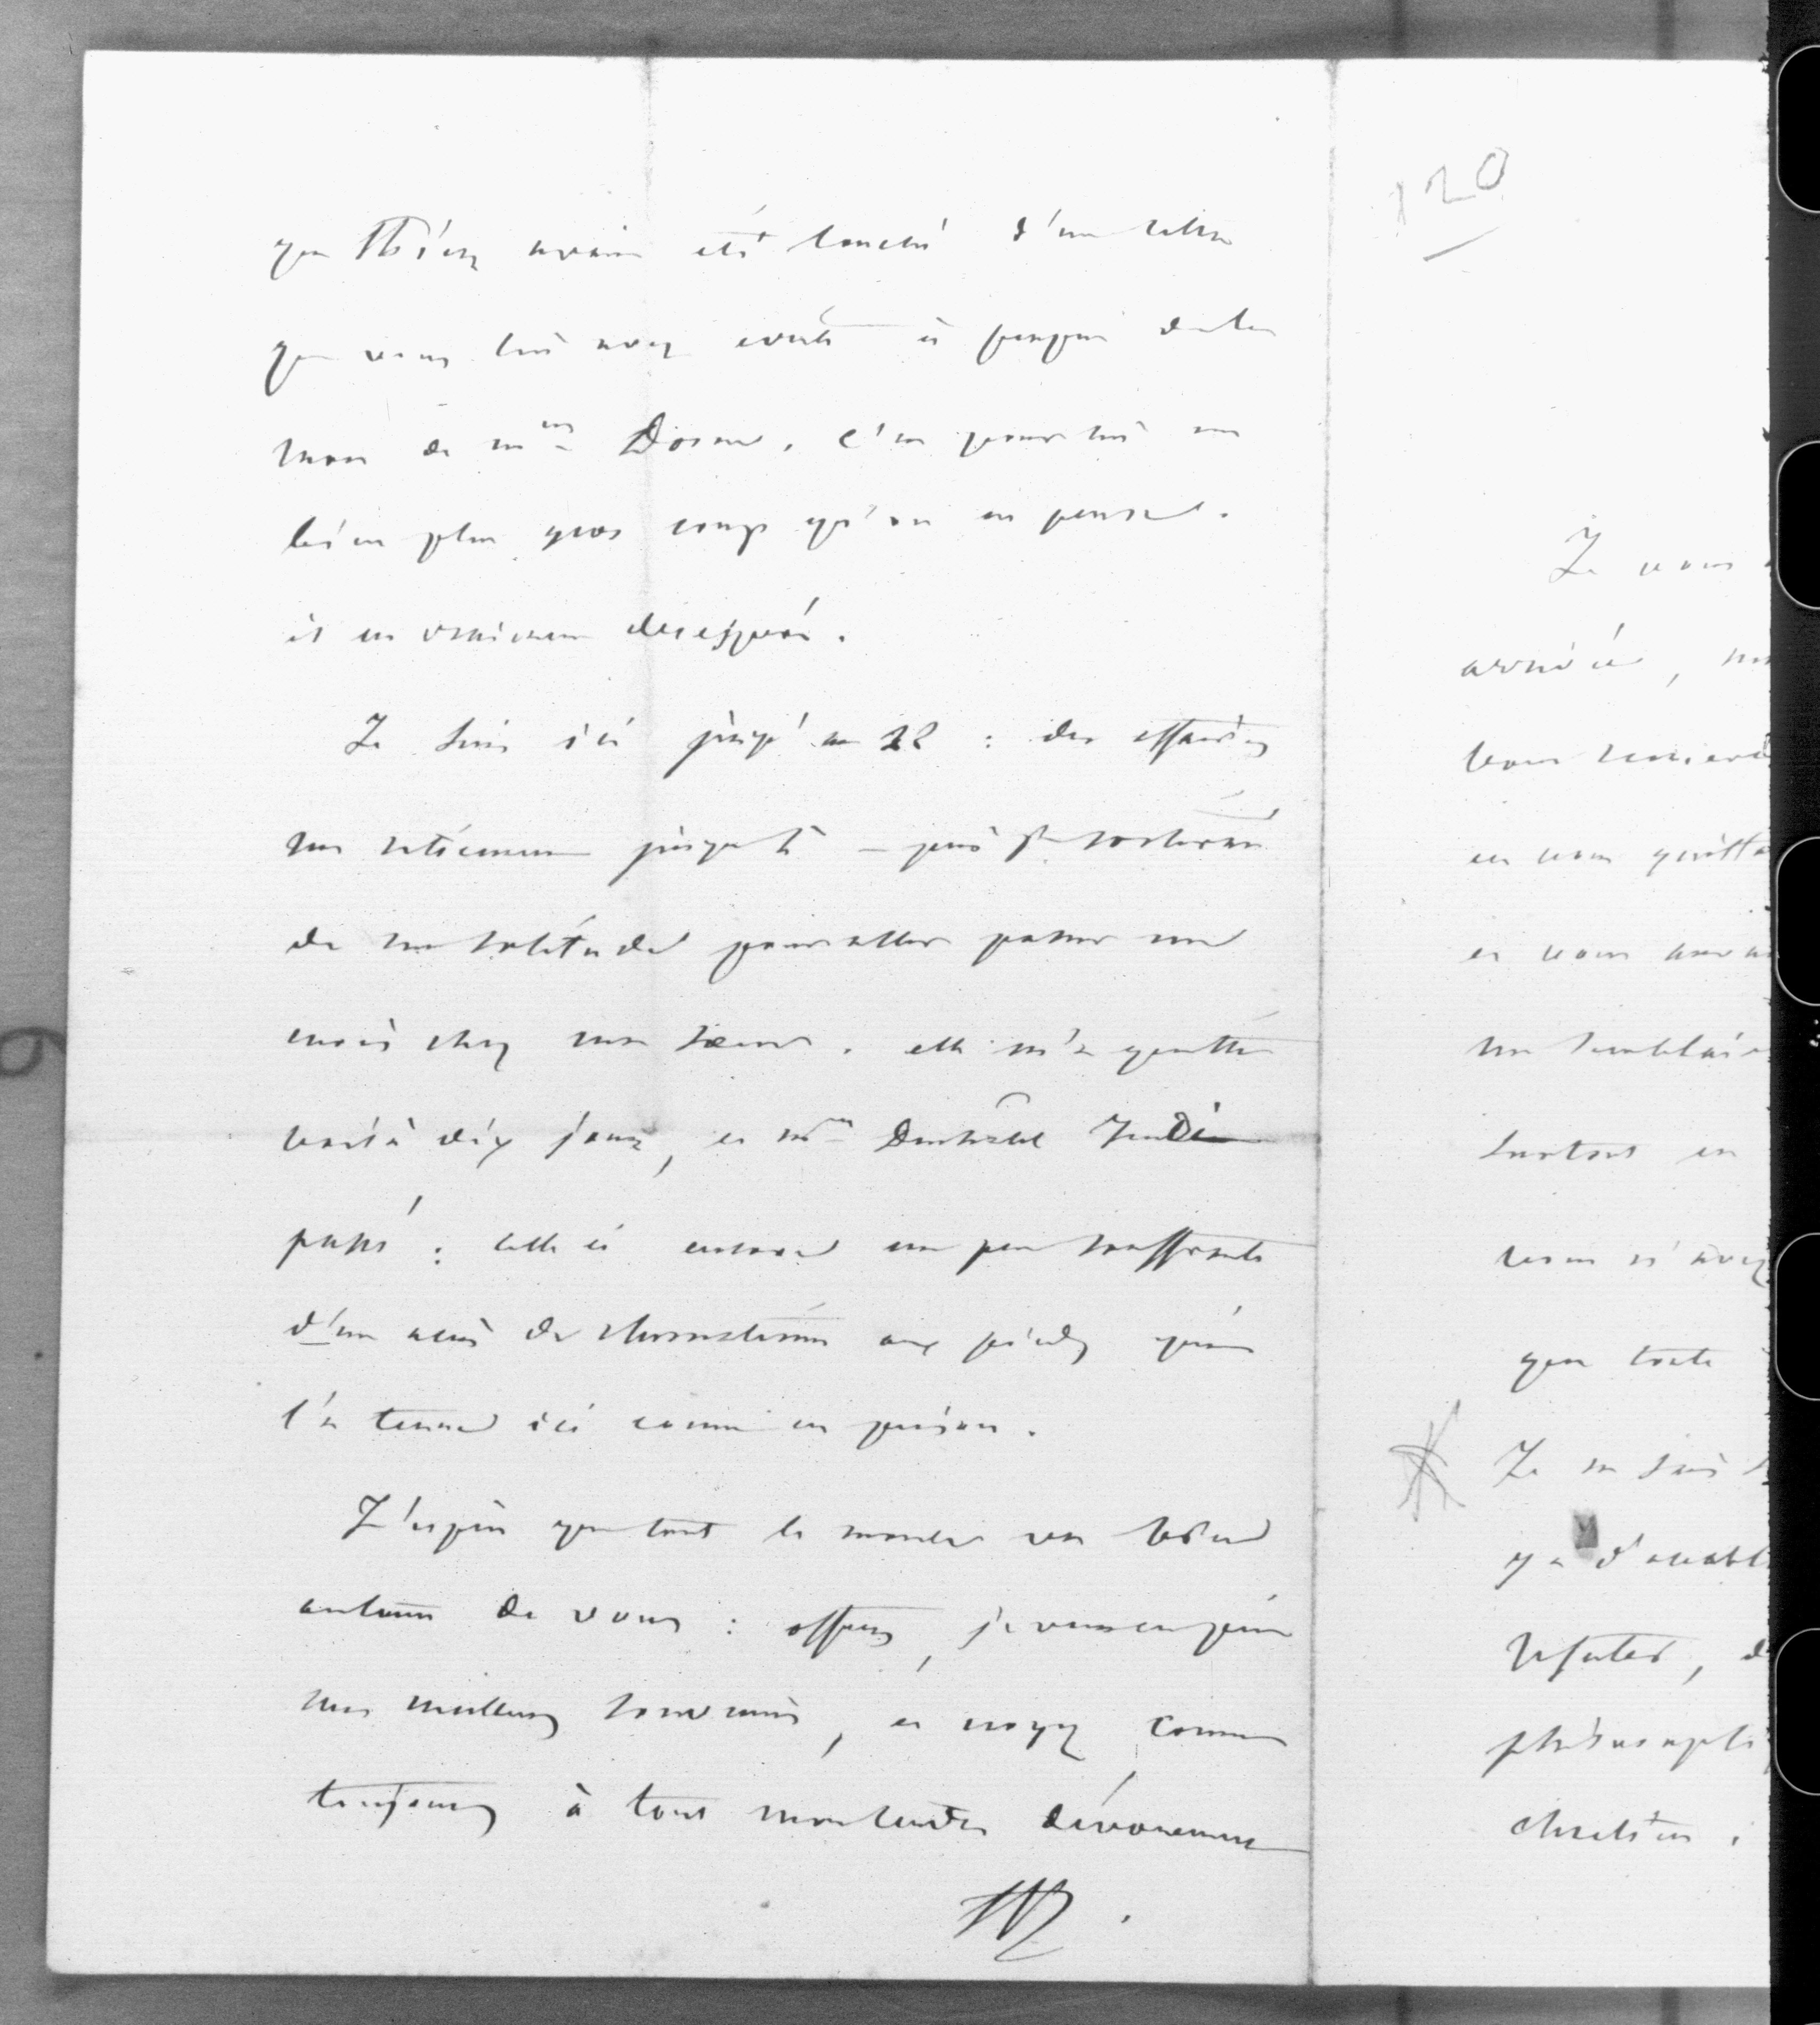 que Thiers avait été touché d'une lettre
que vous lui avez écrite à propos de la
mort de Mme Dosne. C'est pour lui un
bien plus gros coup qu'on ne pense.
il est vraiment désespéré.
Je suis ici jusqu'au 22 : des affaires
me retiennent jusque là – puis je sortirai
de ma solitude pour aller passer un
mois chez ma sœur. elle m'a quitté
voilà dix jours, et Mme Jeudi
passé : celle ci encore un peu souffrante
d'un accès de rhumatisme aux pieds qui
l'a tenue ici comme en prison.
J'espère que tout le monde va bien
autour de vous : offrez, je vous en prie
mes meilleurs souvenirs, et croyez comme
toujours à tout mon tendre dévouement
120
Je vous
arrivée,
vous
en vous quitta
et vous
me semblai
surtout en
vous n'avez
que toute
Je ne sais
y a d'
réfuter, d
philosophi
chrétien ;